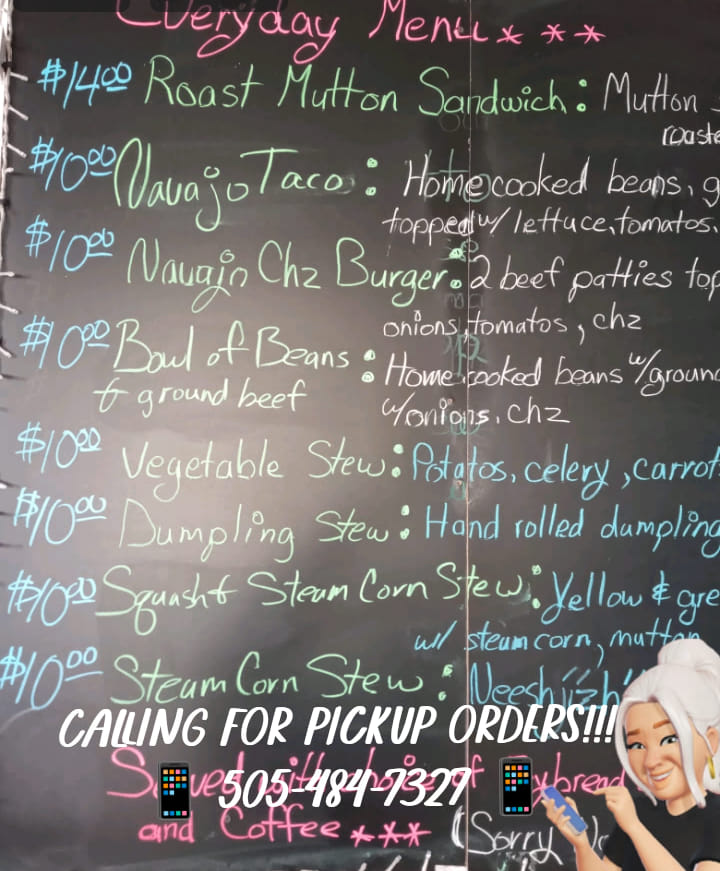 Everyday Menu ***
$14.00 Roast Mutton Sandwich: Mutton
roaste
$10.00 Navajo Taco: Homecooked beans, g
topped w/ lettuce, tomatos,
$10.00 Navajo Chz Burger: 2 beef patties top
onions, tomatos, chz
$10.00 Bowl of Beans: Homecooked beans w/groun
& ground beef w/onions, chz
$10.00 Vegetable Stew: Potatos, celery, carrot
$10.00 Dumpling Stew: Hand rolled dumpling
$10.00 Squash & Steam Corn Stew: Yellow & gre
w/ steam corn, mutton
$10.00 Steam Corn Stew: Neeshjizhi'
CALLING FOR PICKUP ORDERS!!!
505-484-7327
and Coffee *** (Sorry